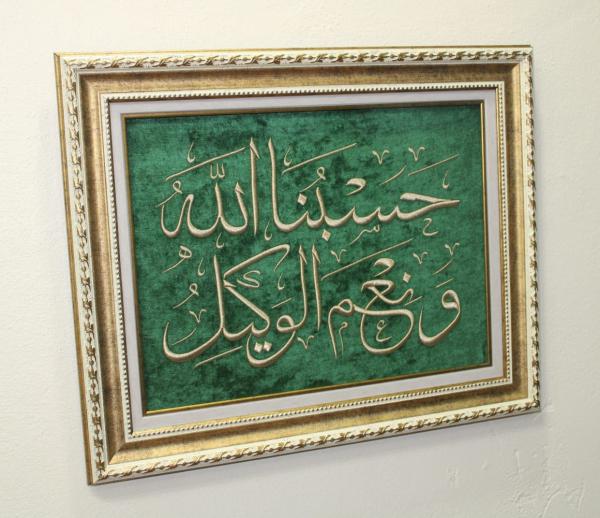 حَسْبُنَا اللّٰهُ
وَ نِعْمَ الْوَكِيْلُ